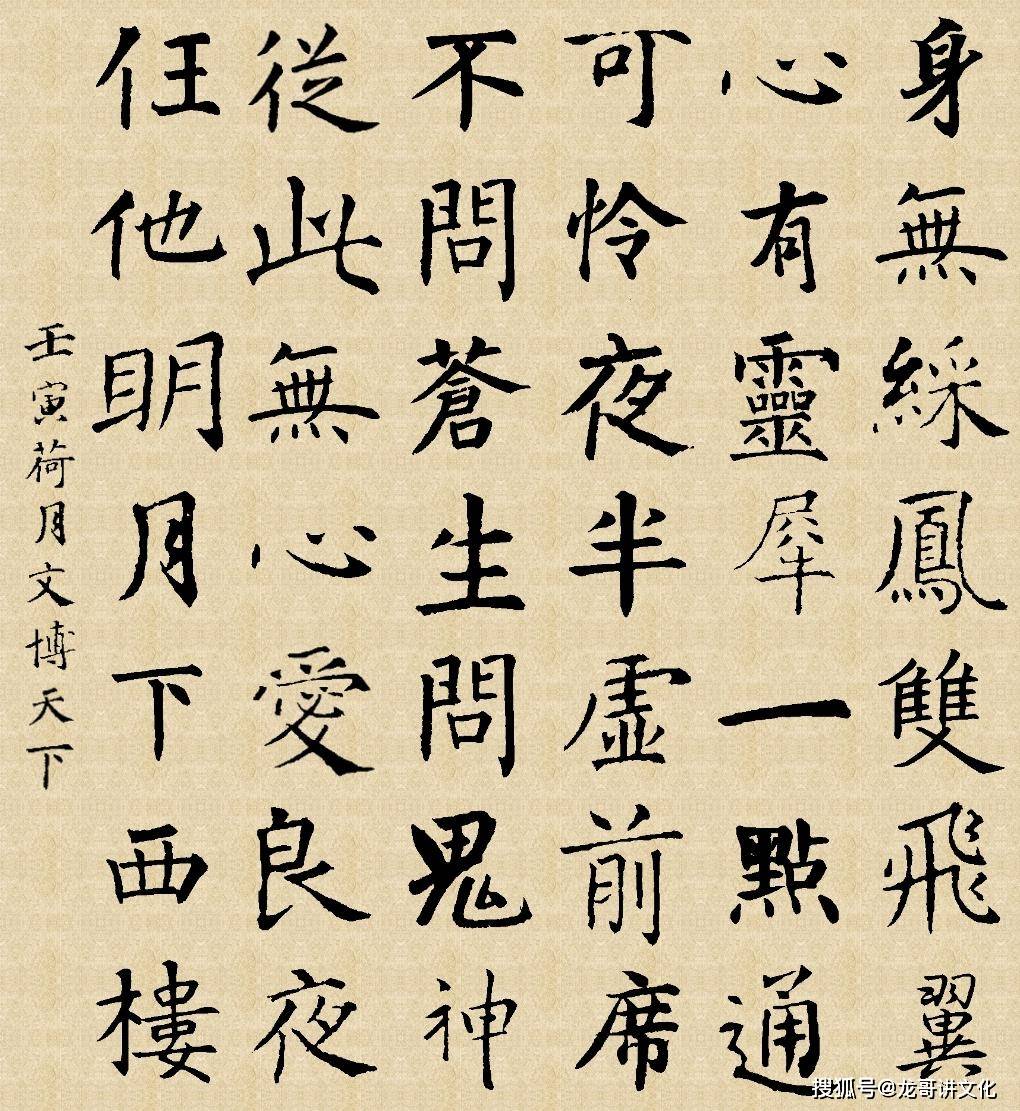 身無綵鳳雙飛翼
心有靈犀一點通
可怜夜半虛前席
不問蒼生問鬼神
從此無心愛良夜
任他明月下西樓
壬寅荷月文博天下
搜狐号@龙哥讲文化